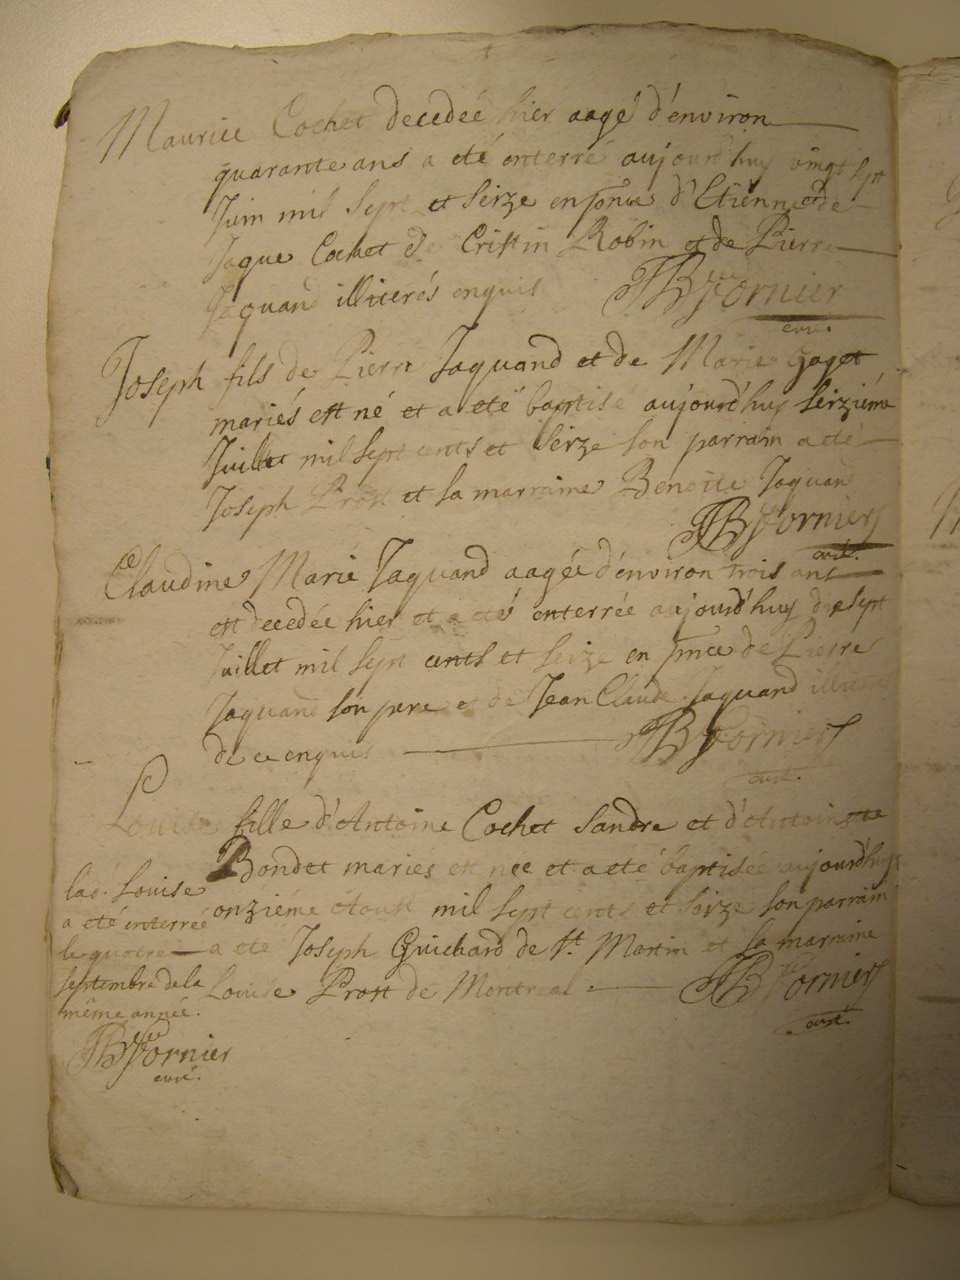 Maurice Cochet decedeé hier aagé d'environ
quarante ans a eté enterré aujourd'huy vingt sept
Juin mil sept et seize en pnce d'Etienne et de
Jaque Cochet de Cristin Robin et de Pierre
Jaquand illiterés enquis JB Fornier
curé.
Joseph fils de Pierre Jaquand et de Marie Goget
mariés est né et a eté baptisé aujourd'huy seiziéme
Juillet mil sept cents et seize son parrain a eté
Joseph Prost et sa marraine Benoite Jaquand
JB Fornier
curé.
Claudine Marie Jaquand aageé d'environ trois ans
est decedée hier et a eté enterrée aujourd'huy dixsept
Juillet mil sept cents et seize en pnce de Pierre
Jaquand son pere et de Jean Claude Jaquand
de ce enquis JB Fornier
curé.
Louise fille d'Antoine Cochet Sandre et d'Antoinette
Bondet mariés est née et a eté baptisée aujourd'huy
onziéme Aoust mil sept cents et seize son parrain
a eté Joseph Guichard de St. Martin et sa marraine
Louise Prost de Montreal JB Fornier
curé.
lad. Louise
a eté enterrée
le quatre
septembre de la
même année.
JB Fornier
curé.